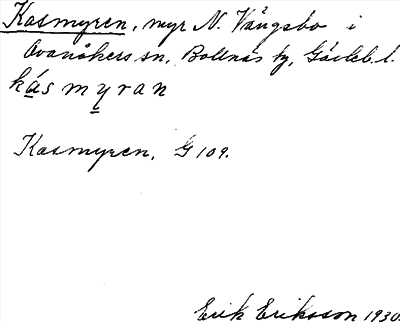 Kasmyren, myr N. Vängsbo i
Ovanåkers sn, Bollnäs tg, Gävleb. l.
kásmyran
Kasmyren, G 109.
Erik Eriksson 1930.